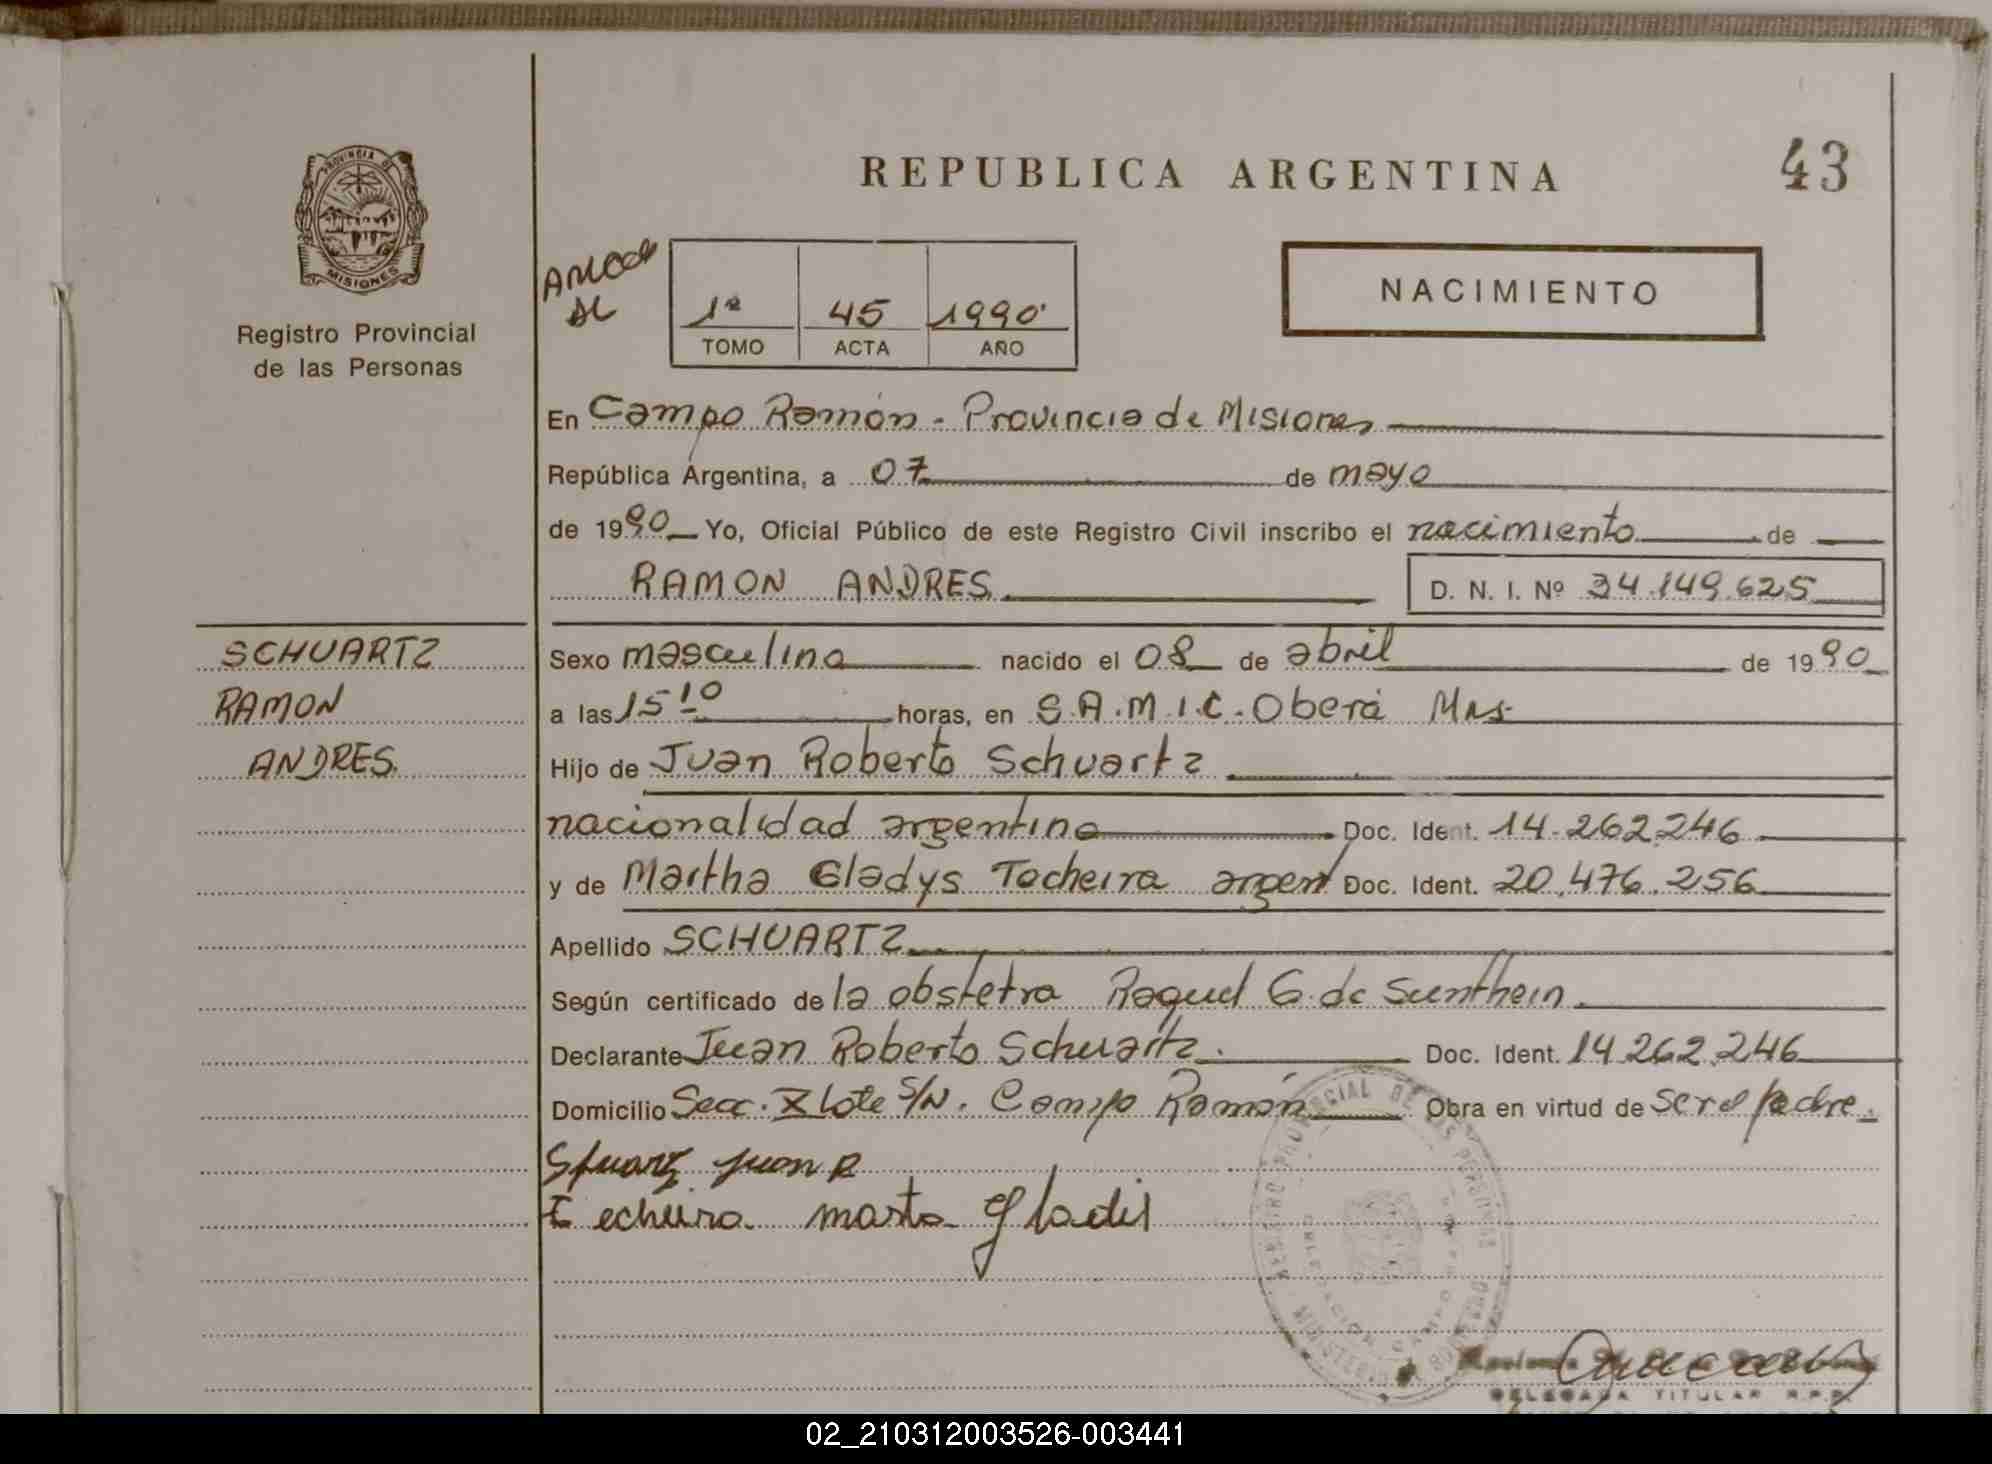 REPUBLICA ARGENTINA
43
PROVINCIA DE
MISIONES
Registro Provincial
de las Personas
1ª 45 1990
TOMO ACTA AÑO
NACIMIENTO
En Campo Ramón - Provincia de Misiones
República Argentina, a 07 de mayo
de 1990 Yo, Oficial Público de este Registro Civil inscribo el nacimiento de
RAMON ANDRES D. N. I. Nº 34.149.625
SCHUARTZ
RAMON
ANDRES
Sexo masculino nacido el 08 de abril de 1990
a las 15 10 horas, en S.A.M.I.C. Oberá Mns
Hijo de Juan Roberto Schuartz
nacionalidad argentina Doc. Ident. 14.262.246
y de Martha Gladys Techeira argent Doc. Ident. 20.476.256
Apellido SCHUARTZ
Según certificado de la obstetra Raquel G. de Sunthein
Declarante Juan Roberto Schuartz Doc. Ident. 14.262.246
Domicilio Secc. X Lote S/N. Campo Ramón Obra en virtud de ser el padre
Juan R
Techeira marta Gladis
DELEGADA TITULAR R.P.P.
02_210312003526-003441